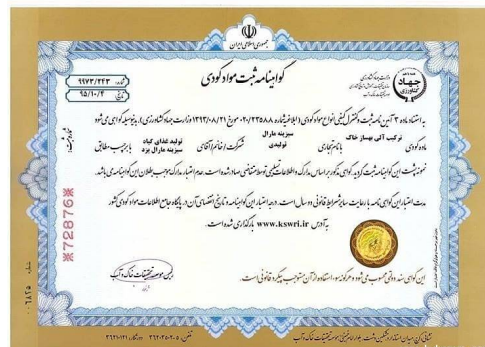 جمهوری اسلامی ایران
گواهینامه ثبت مواد کودی
جهاد کشاورزی
وزارت جهاد کشاورزی
شماره: ۹۹۷۳/۲۴۳
تاریخ: ۹۵/۱۰/۴
به استناد ماده ۳ آیین نامه ثبت و کنترل کیفی انواع مواد کودی (ابلاغیه شماره ۰۲۰/۲۳۵۸۸ مورخ ۱۳۹۳/۰۸/۲۱ وزارت جهاد کشاورزی) بدینوسیله گواهی می شود
ماده کودی ترکیب آلی بهساز خاک با نام تجاری سبزینه مارال تولیدی شرکت / خانم / آقای تولید غذای گیاه سبزینه مارال یزد با برچسب مطابق
نمونه پشت این گواهینامه ثبت گردید. گواهی مذکور بر اساس مدارک و اطلاعات تسلیمی توسط متقاضی صادر شده است. عدم اعتبار مدارک موجب بطلان این گواهینامه می باشد.
مدت اعتبار این گواهی نامه با رعایت سایر شرایط قانونی دو سال است. درجه اعتبار این گواهینامه و تاریخ انقضای آن در پایگاه جامع اطلاعات مواد کودی کشور
به آدرس www.kswri.ir بارگذاری شده است.
رئیس موسسه تحقیقات خاک و آب
این گواهی سند دولتی محسوب می شود و هرگونه سوء استفاده از آن مستوجب پیگرد قانونی است.
※72876※
شماره ۰۰۶۸۲۵